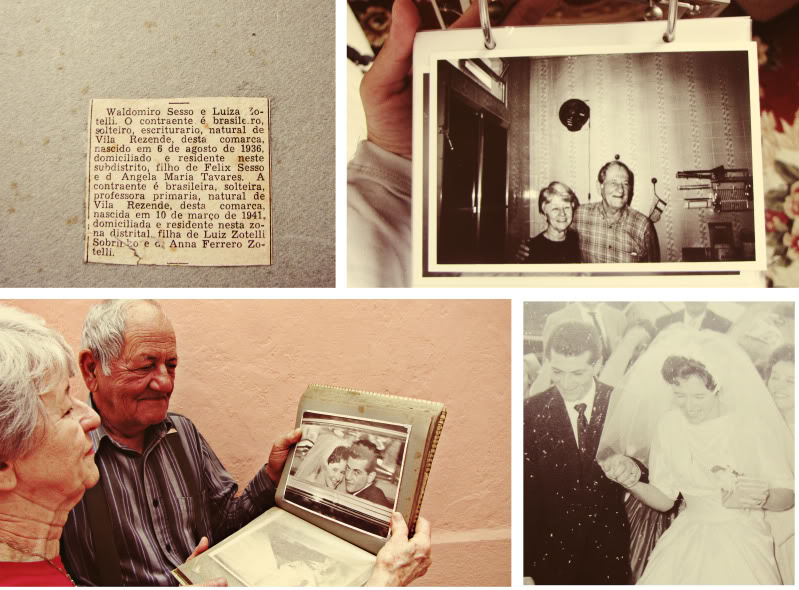 Waldomiro Sesso e Luiza Zo-
telli. O contraente é brasileiro,
solteiro, escriturario, natural de
Vila Rezende, desta comarca,
nascido em 6 de agosto de 1936,
domiciliado e residente neste
subdistrito, filho de Felix Sesso
e d Angela Maria Tavares. A
contraente é brasileira, solteira,
professora primaria, natural de
Vila Rezende, desta comarca,
nascida em 10 de março de 1941,
domiciliada e residente nesta zo-
na distrital, filha de Luiz Zotelli
Sobrinho e d. Anna Ferrero Zo-
telli.